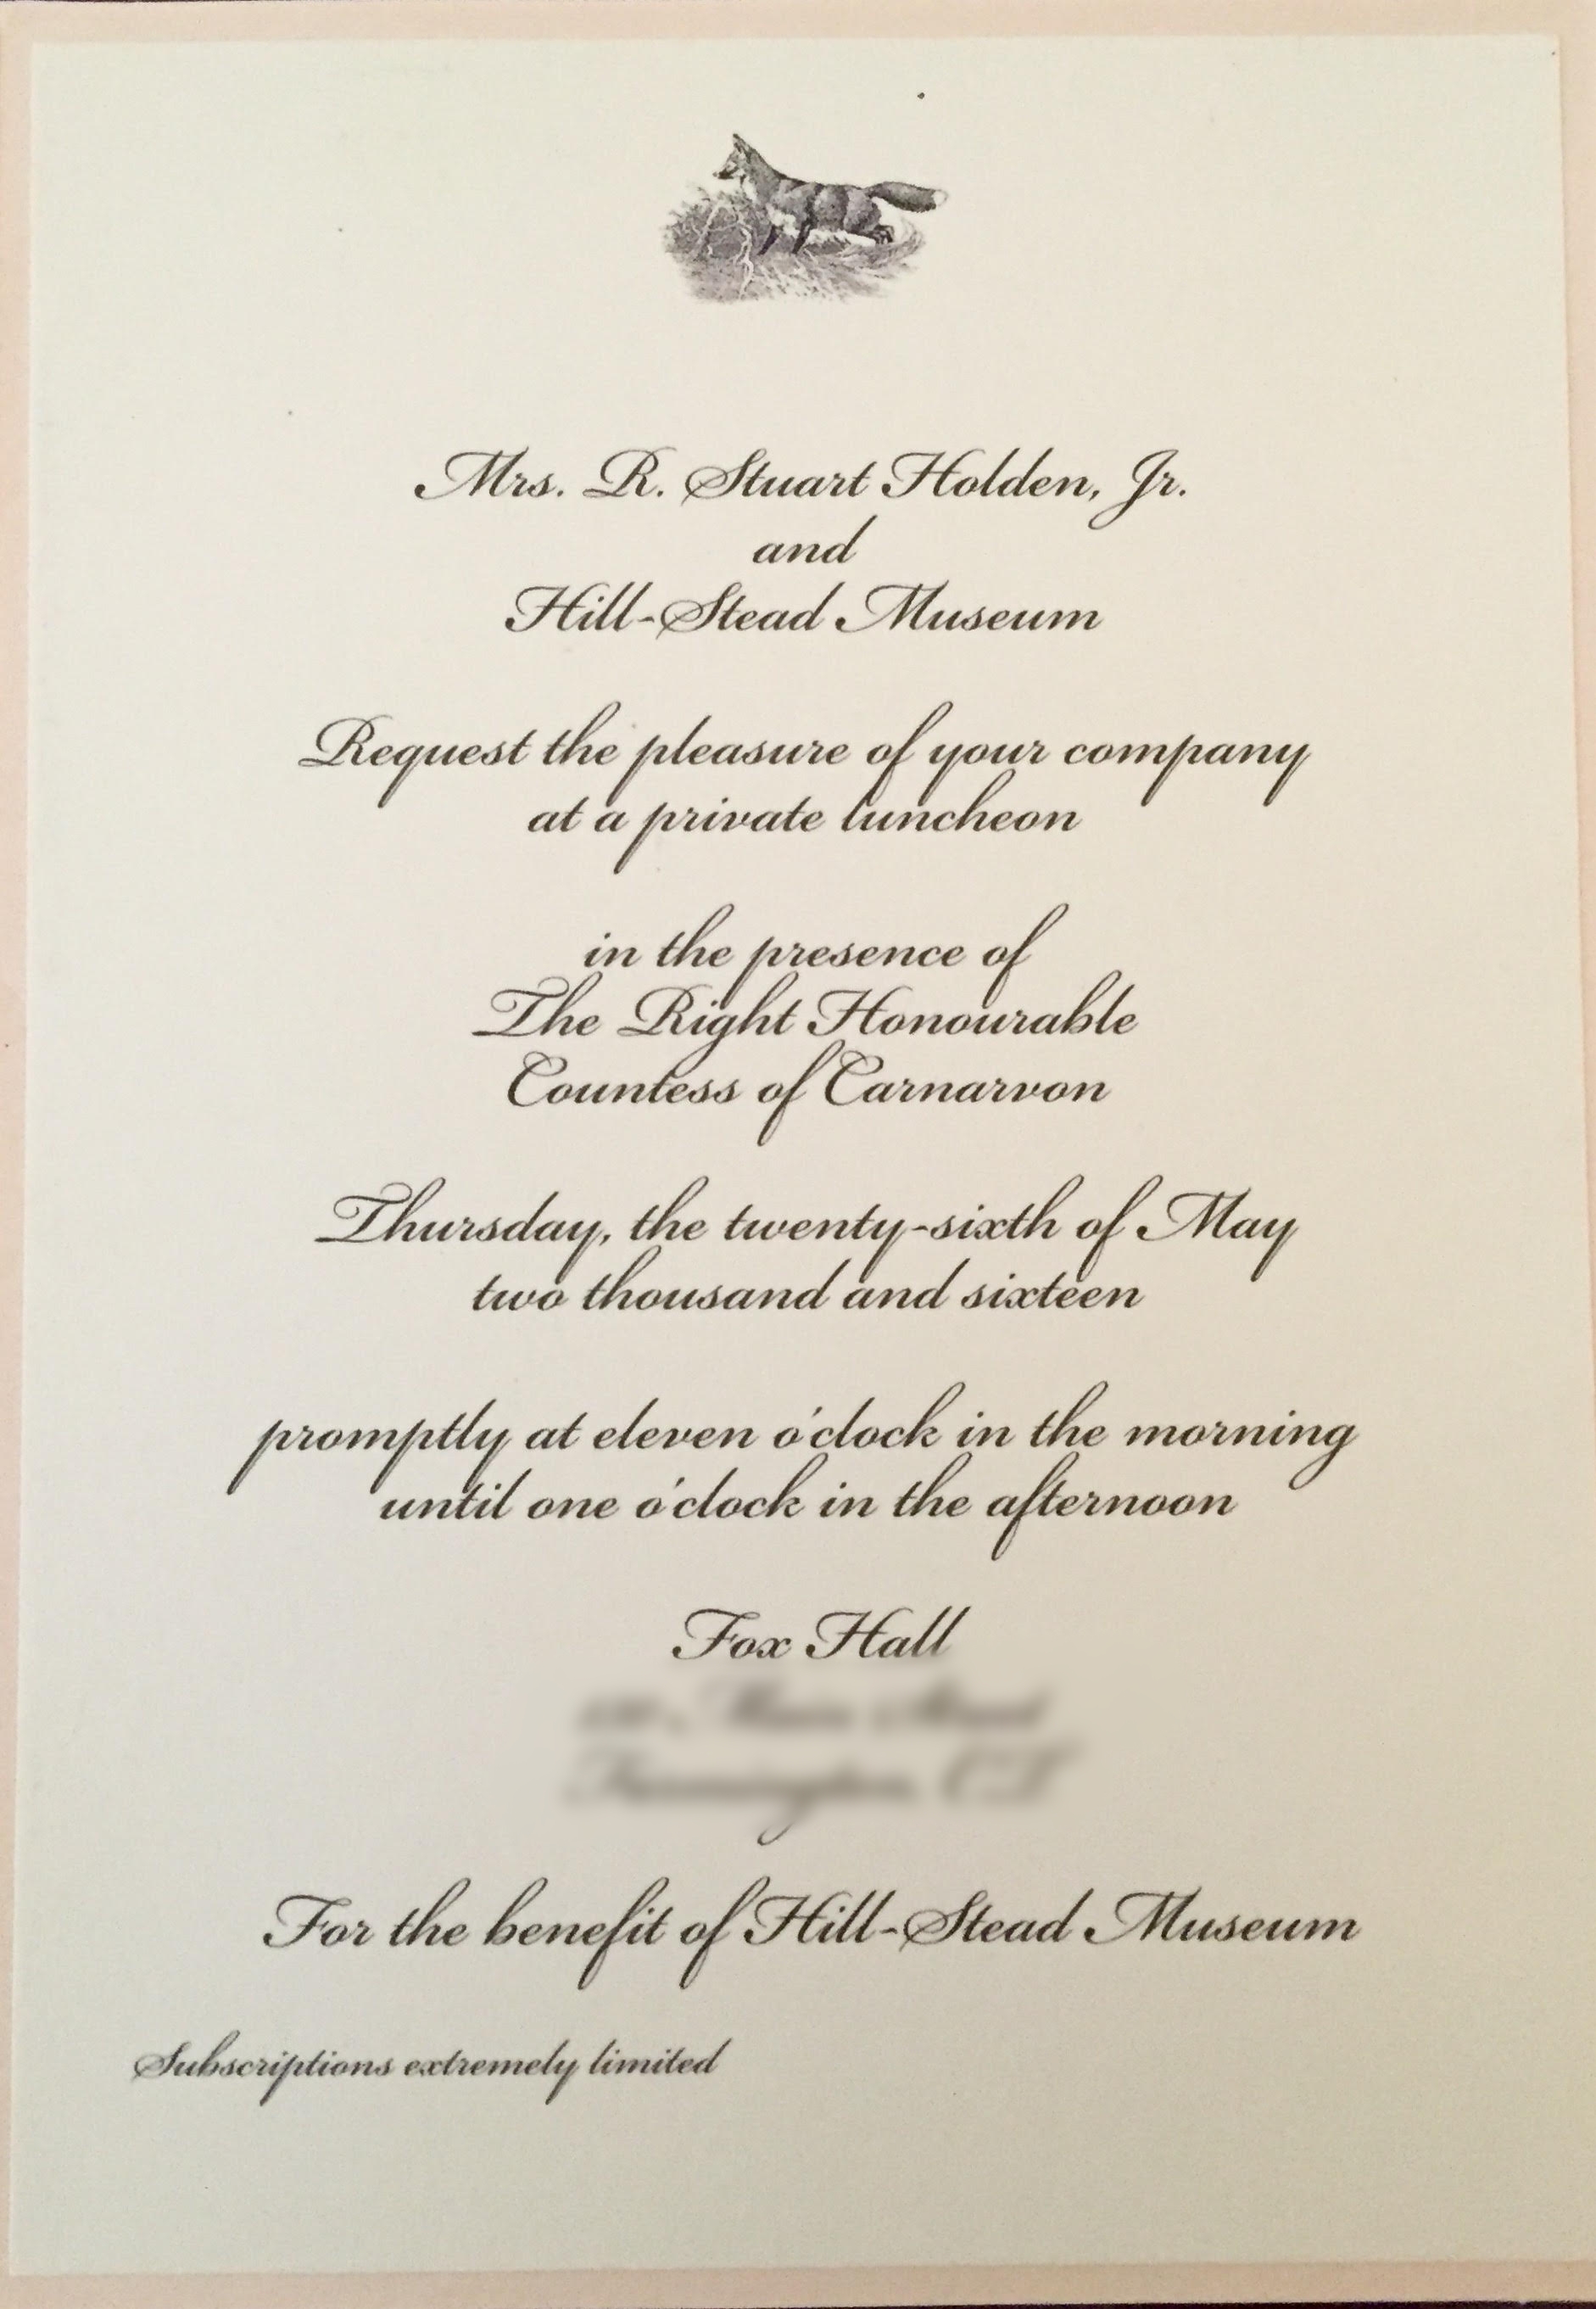 Mrs. R. Stuart Holden, Jr.
and
Hill-Stead Museum
Request the pleasure of your company
at a private luncheon
in the presence of
The Right Honourable
Countess of Carnarvon
Thursday, the twenty-sixth of May
two thousand and sixteen
promptly at eleven o'clock in the morning
until one o'clock in the afternoon
Fox Hall
For the benefit of Hill-Stead Museum
Subscriptions extremely limited